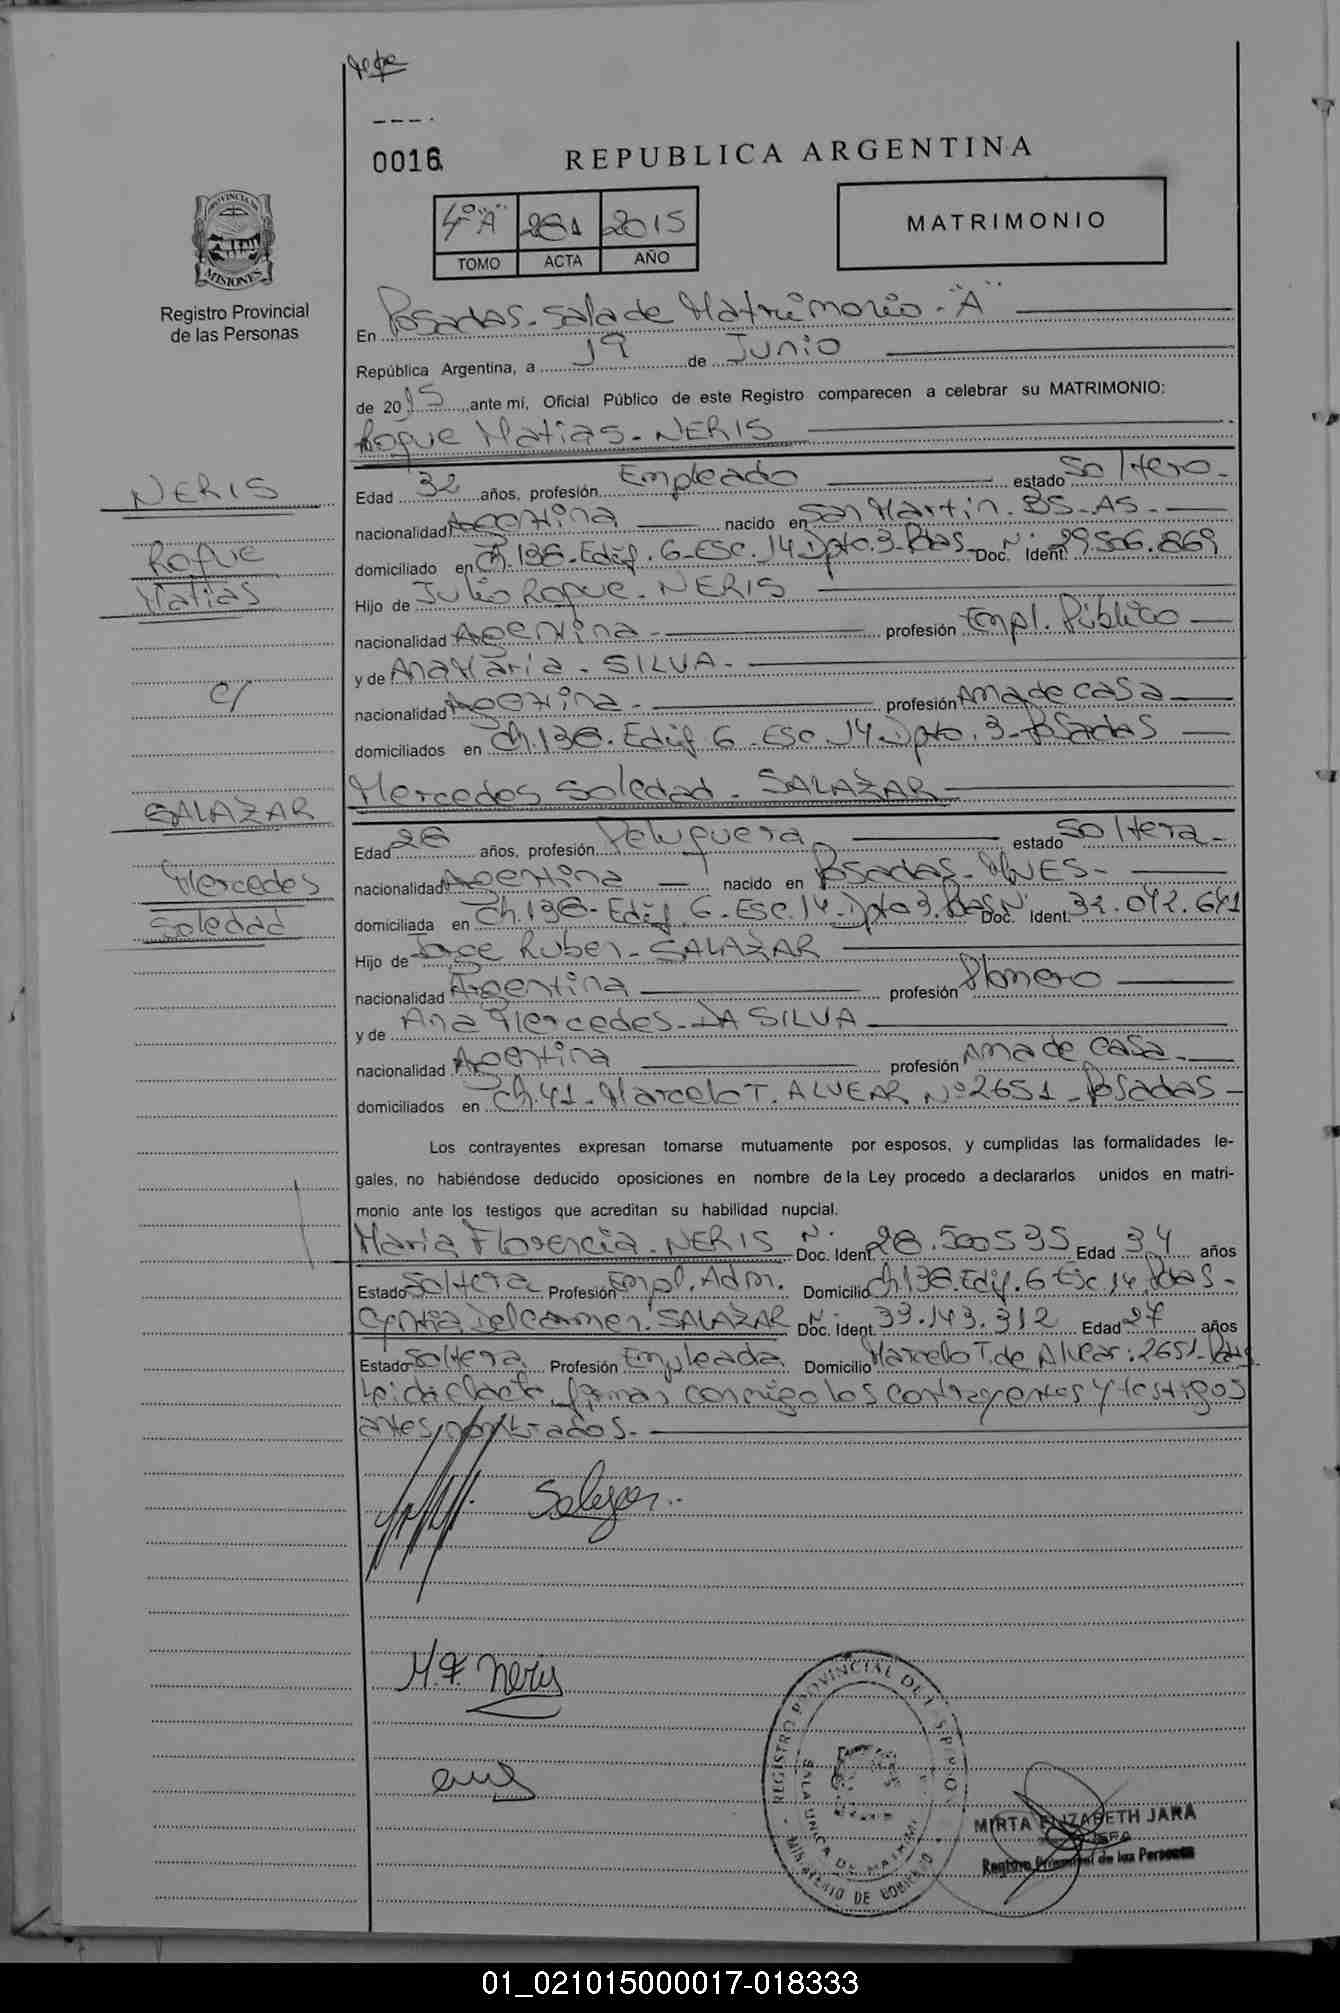 0016
REPUBLICA ARGENTINA
4º "A" 281 2015
TOMO ACTA AÑO
MATRIMONIO
PROVINCIA DE
MISIONES
Registro Provincial
de las Personas
En Posadas - Sala de Matrimonio - "A"
República Argentina, a 19 de Junio
de 2015, ante mí, Oficial Público de este Registro comparecen a celebrar su MATRIMONIO:
Roque Matias - NERIS
NERIS
Roque
Matias
c/
SALAZAR
Mercedes
Soledad
Edad 32 años, profesión Empleado estado Soltero -
nacionalidad Argentina nacido en San Martin. BS-AS-
domiciliado en Ch.138-Edif. 6-ESC.14 Dpto.3-Pdas- Doc. Ident. Nº 29.506.869
Hijo de Julio Roque - NERIS
nacionalidad Argentina - profesión Empl. Público
y de Ana Maria - SILVA -
nacionalidad Argentina - profesión Ama de casa
domiciliados en Ch.138. Edif. 6 - ESC 14 Dpto. 3 - Posadas
Mercedes Soledad - SALAZAR
Edad 28 años, profesión Peluquera estado Soltera -
nacionalidad Argentina nacido en Posadas - MNES -
domiciliada en Ch.138 - Edif. 6 - ESC.14 - Dpto 3. Pdas Doc. Ident. Nº 32.042.641
Hijo de Jorge Ruben - SALAZAR
nacionalidad Argentina profesión Plomero
y de Ana Mercedes - DA SILVA
nacionalidad Argentina profesión Ama de casa -
domiciliados en Ch.41 - Marcelo T. ALVEAR Nº 2651 - Posadas -
Los contrayentes expresan tomarse mutuamente por esposos, y cumplidas las formalidades le-
gales, no habiéndose deducido oposiciones en nombre de la Ley procedo a declararlos unidos en matri-
monio ante los testigos que acreditan su habilidad nupcial.
Maria Florencia - NERIS Doc. Ident. Nº 28.500535 Edad 34 años
Estado Soltera Profesión Empl. Adm. Domicilio Ch138. Edif. 6 Esc. 14. Pdas -
Cyntia Del Carmen. SALAZAR Doc. Ident. Nº 33.143.312 Edad 27 años
Estado Soltera Profesión Empleada Domicilio Marcelo T. de Alvear: 2651 - Pdas
Leida el acta firman conmigo los contrayentes y testigos
antes nombrados. -
Salazar
M.F. Neris
REGISTRO PROVINCIAL DE LAS PERSONAS
SALA UNICA DE MATRIMONIO
MINISTERIO DE GOBIERNO
MIRTA ELIZABETH JARA
Registro Provincial de las Personas
01_021015000017-018333